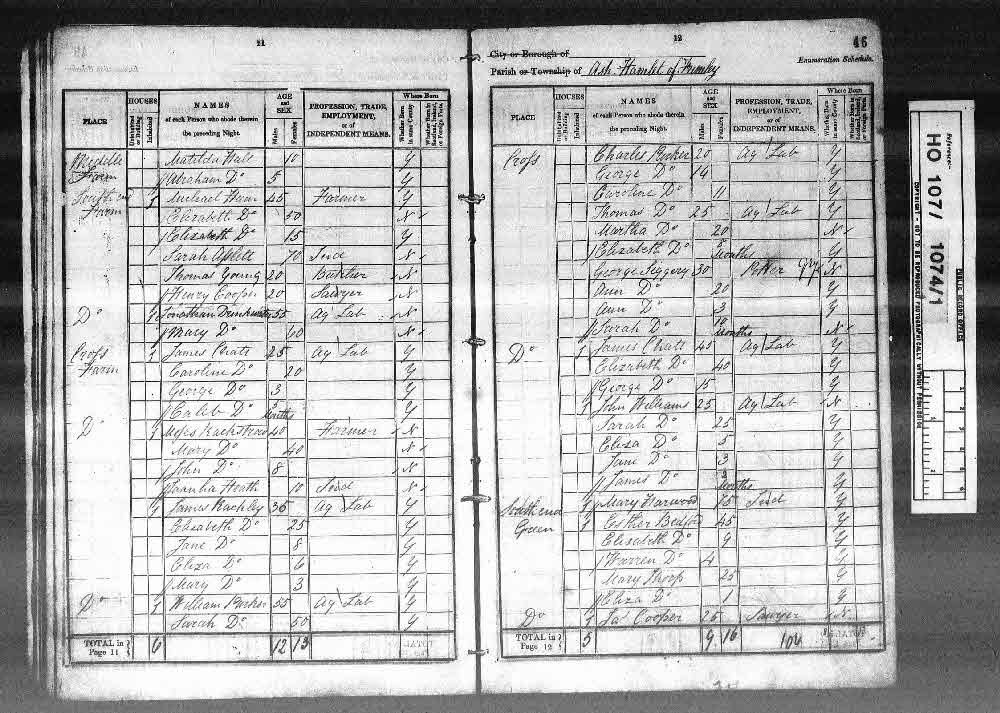 11
PLACE
HOUSES
Uninhabited or Building
Inhabited
NAMES
of each Person who abode therein
the preceding Night.
AGE
and
SEX
Males
Females
PROFESSION, TRADE,
EMPLOYMENT,
or of
INDEPENDENT MEANS.
Where Born
Whether Born in same County
Whether Born in Scotland, Ireland, or Foreign Parts.
Middle Farm Matilda 10 Y
Abraham Do 5 Y
South end Farm 1 Michael 45 Farmer Y
Elizabeth Do 50 N
Elizabeth Do 15 Y
Sarah 70 Ind N
Thomas Young 20 Butcher N
Henry Cooper 20 Sawyer N
Do 1 Jonathan Drinkwater 55 Ag Lab Y
Mary Do 60 N
Farm 1 James 25 Ag Lab Y
Caroline Do 20 Y
George Do 3 Y
Caleb Do 5 Months Y
Do 1 Moses 40 Farmer N
Mary Do 40 N
John Do 8 N
Heath 10 N
1 James 35 Ag Lab Y
Elizabeth Do 25 Y
Jane Do 8 Y
Eliza Do 6 Y
Mary Do 3 Y
Do 1 William Parker 55 Ag Lab Y
Sarah Do 50 Y
TOTAL in Page 11 6 12 13
12
46
City or Borough of
Parish or Township of Ash Hamlet of Frimley
Enumeration Schedule.
PLACE
HOUSES
Uninhabited or Building
Inhabited
NAMES
of each Person who abode therein
the preceding Night.
AGE
and
SEX
Males
Females
PROFESSION, TRADE,
EMPLOYMENT,
or of
INDEPENDENT MEANS.
Where Born
Whether Born in same County
Whether Born in Scotland, Ireland, or Foreign Parts.
Charles Parker 20 Ag Lab Y
George Do 14 Y
Caroline Do 11 Y
Thomas Do 25 Ag Lab Y
Martha Do 20 N
Elizabeth Do 5 Months Y
George 30 Potter N
Ann Do 20 Y
Ann Do 3 Y
Sarah Do 10 Months N
Do 1 James 40 Ag Lab Y
Elizabeth Do 40 Y
George Do 15 Y
1 John Williams 25 Ag Lab N
Sarah Do 25 Y
Eliza Do 5 Y
Jane Do 3 Y
James Do 3 Months Y
South end Green 1 Mary Harwood 75 Ind Y
1 Esther Bedford 45 Y
Elizabeth Do 9 Y
Warren Do 4 Y
Mary 25 Y
Eliza Do 1 Y
Do 1 Jas Cooper 25 Sawyer N
TOTAL in Page 12 5 9 16
Reference:-
HO 107/ 1074/1
PUBLIC RECORD OFFICE
COPYRIGHT - NOT TO BE REPRODUCED PHOTOGRAPHICALLY WITHOUT PERMISSION